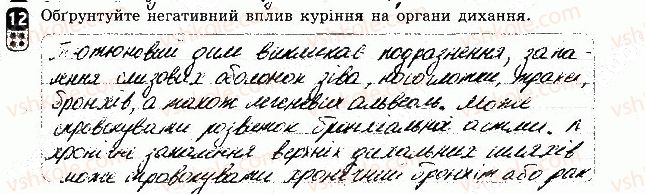 12 Обґрунтуйте негативний вплив куріння на органи дихання.
Тютюновий дим викликає подразнення, запа-
лення слизових оболонок зіва, носоглотки, трахеї,
бронхів, а також легеневих альвеол. Може
спровокувати розвиток бронхіальної астми. А
хронічні запалення верхніх дихальних шляхів
може провокувати хронічний бронхіт або рак.